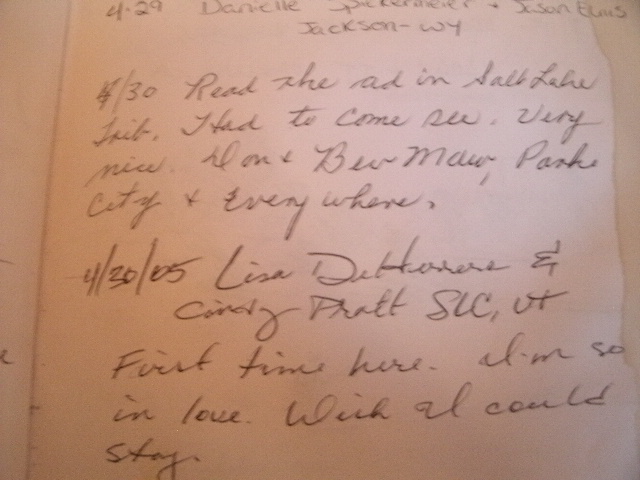 4-29 Danielle & Jason
Jackson-WY
4/30 Read the ad in Salt Lake
Trib. Had to come see. Very
nice. Don & Bev Maw, Park
City & Everywhere.
4/30/05 Lisa &
Cindy Pratt SLC, Ut
First time here. I'm so
in love. Wish I could
stay.